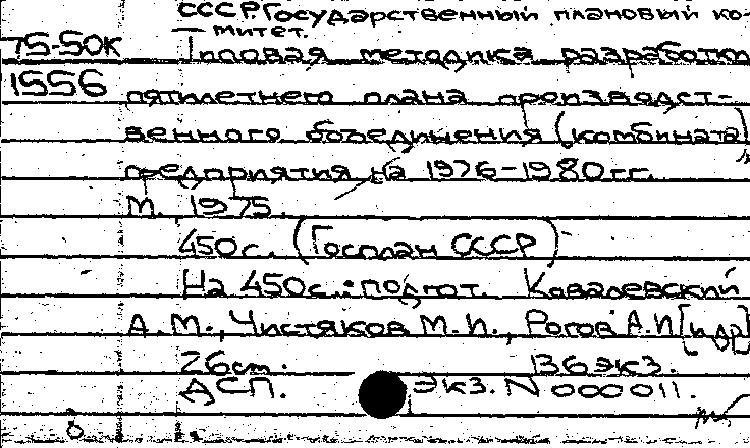 СССР. Государственный плановый ко-
митет.
75-50к Типовая методика разработки
1556 пятилетнего плана производст-
венного объединения (комбината),
предприятия на 1976-1980 гг.
М., 1975.
450 с. (Госплан СССР)
На 450 с.: подгот. Ковалевский
А.М., Чистяков М.И., Рогов А.И. [и др]
26 см. 136 экз.
ДСП. Экз. N 000011.